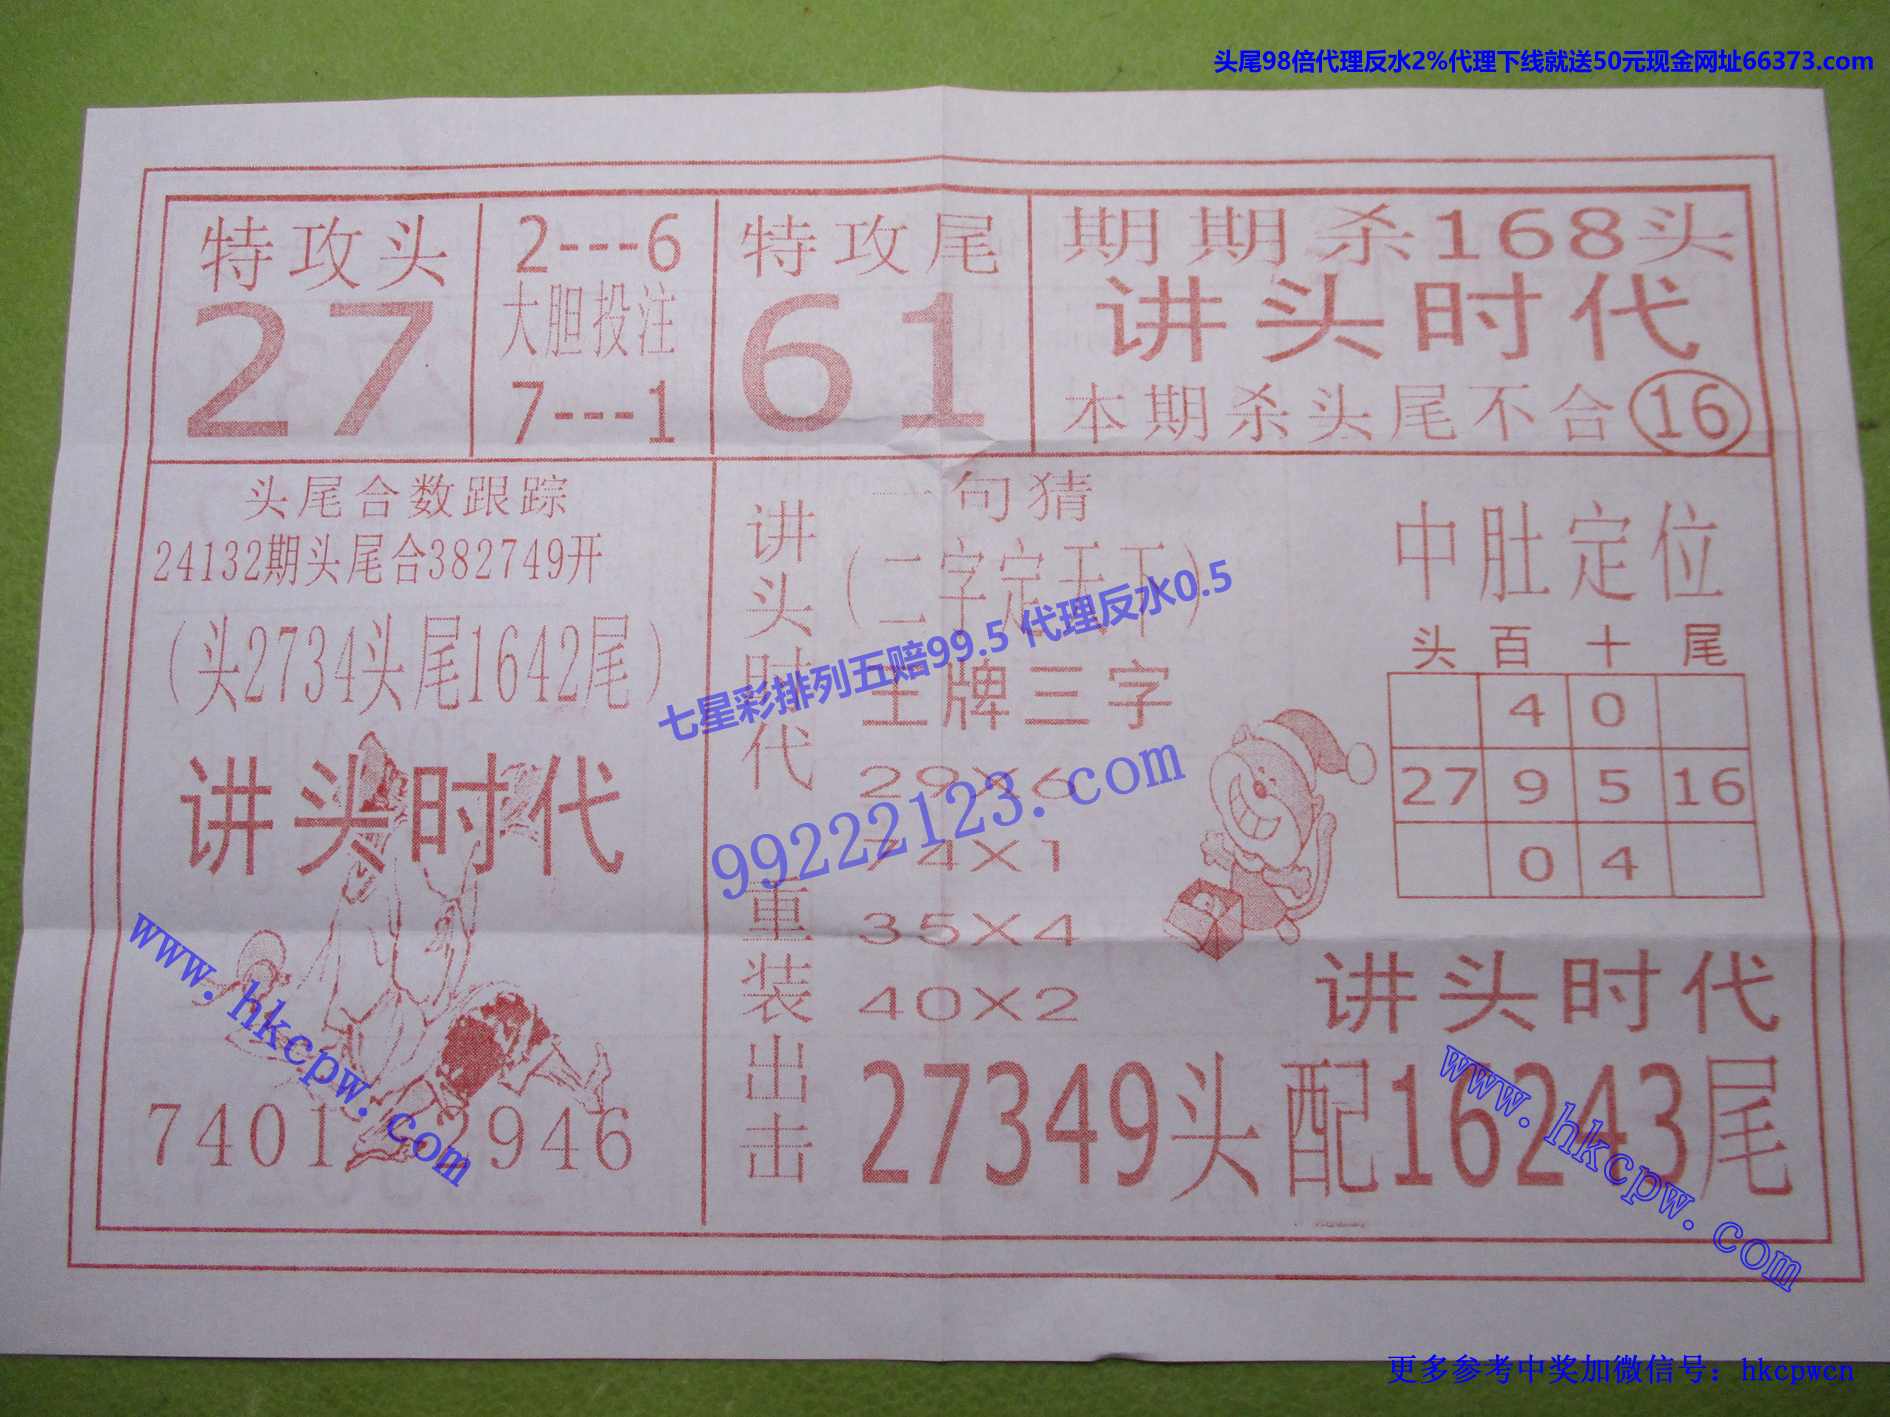 头尾98倍代理反水2%代理下线就送50元现金网址66373.com
特攻头
27
2---6
大胆投注
7---1
特攻尾
61
期期杀168头
讲头时代
本期杀头尾不合16
头尾合数跟踪
24132期头尾合382749开
(头2734头尾1642尾)
讲头时代
www.hkcpw.com
7401 2946
讲头时代
重装出击
一句猜
(二字定天下)
七星彩排列五赔99.5 代理反水0.5
王牌三字
29X6
99222123.com
74X1
35X4
40X2
中肚定位
头 百 十 尾
4 0
27 9 5 16
0 4
讲头时代
27349头配16243尾
www.hkcpw.com
更多参考中奖加微信号：hkcpwcn